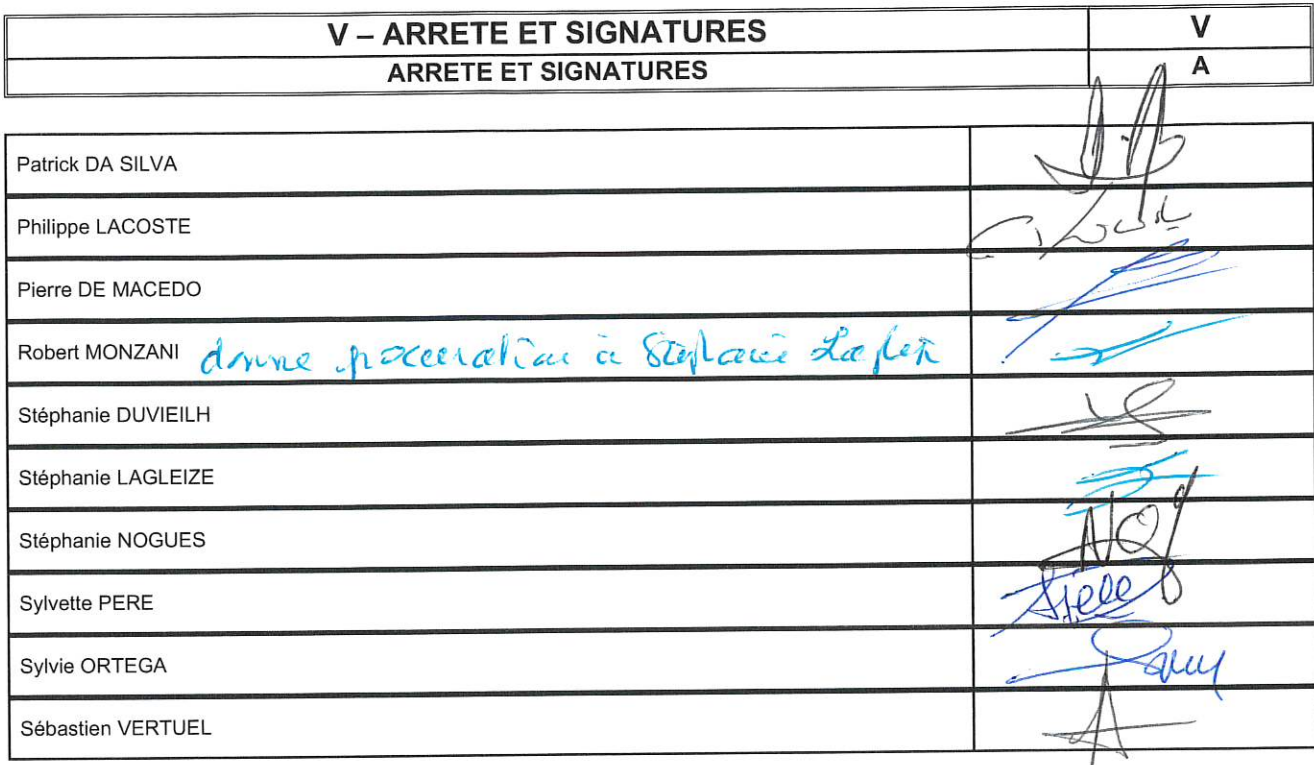 V – ARRETE ET SIGNATURES V
ARRETE ET SIGNATURES A
Patrick DA SILVA
Philippe LACOSTE
Pierre DE MACEDO
Robert MONZANI donne procuration à Stéphanie
Stéphanie DUVIEILH
Stéphanie LAGLEIZE
Stéphanie NOGUES
Sylvette PERE
Sylvie ORTEGA
Sébastien VERTUEL